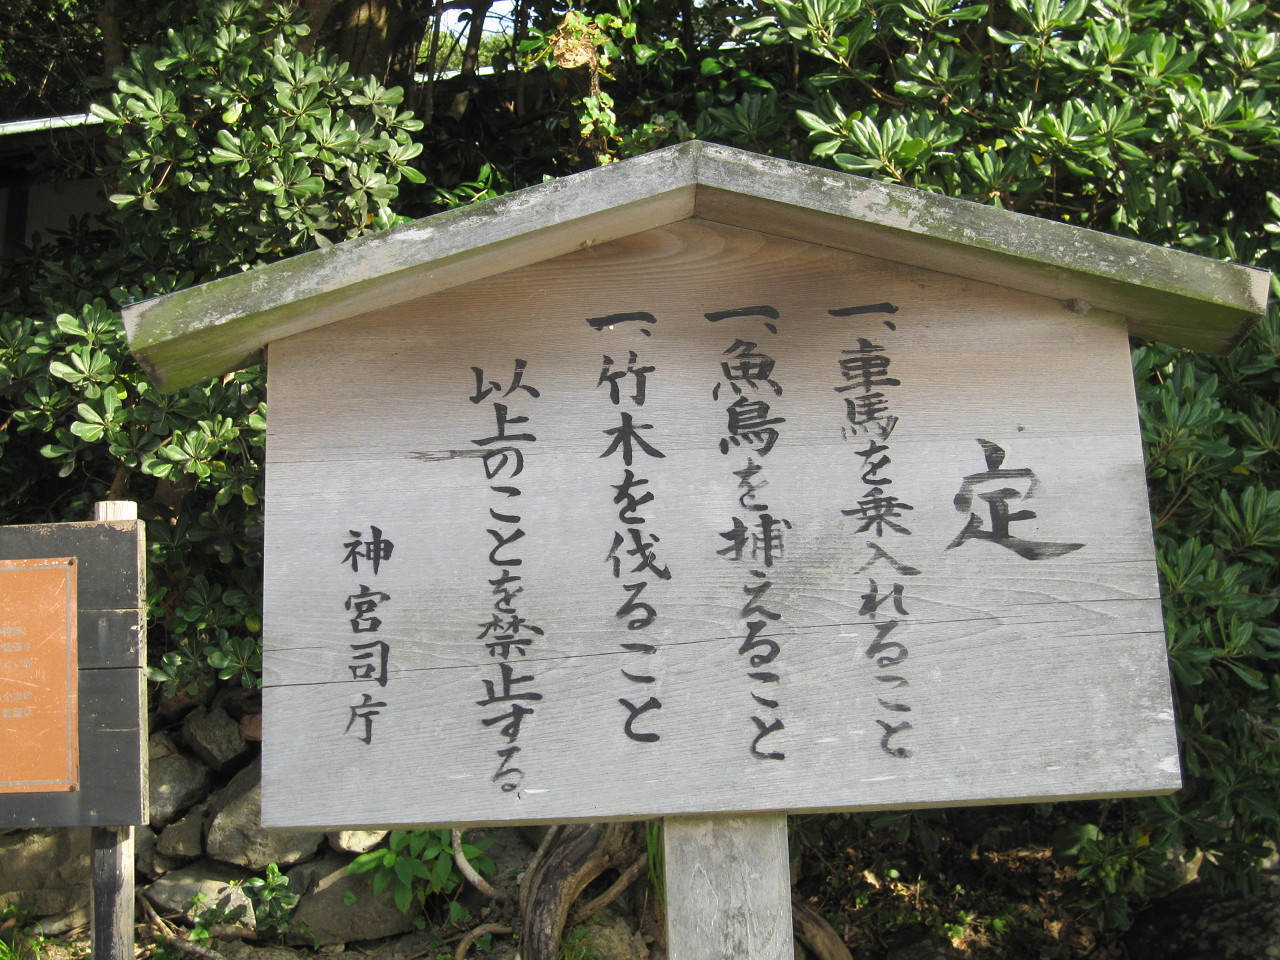 定
一、車馬を乗入れること
一、魚鳥を捕えること
一、竹木を伐ること
以上のことを禁止する
神宮司庁